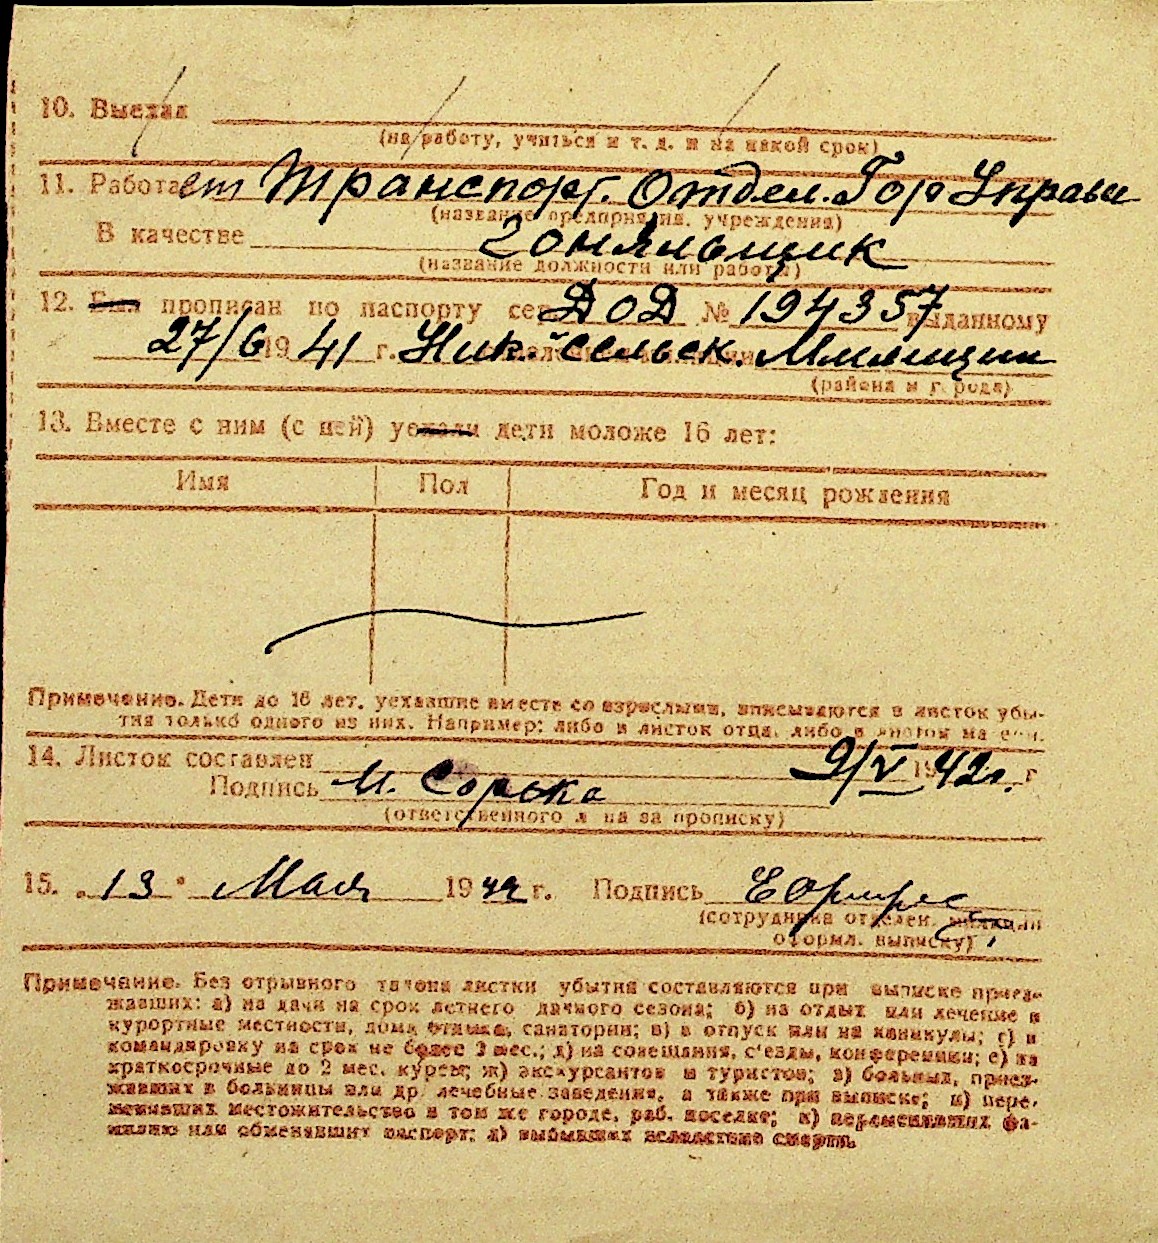 10. Выехал
(на работу, учиться и т. д. и на какой срок)
11. Работает Транспорт. Отдел. Гор Управы
(название предприятия, учреждения)
В качестве
(название должности или работы)
12. Был прописан по паспорту сер ДОД № 194357 выданному
27/6 1941 г. Ник. сельск. Милиции
(района и города)
13. Вместе с ним (с ней) уехали дети моложе 16 лет:
Имя Пол Год и месяц рождения
Примечание. Дети до 16 лет, уехавшие вместе со взрослыми, вписываются в листок убы-
тия только одного из них. Например: либо в листок отца, либо в листок матери.
14. Листок составлен 9/V 1942 г. г
Подпись М. Сорока
(ответственного лица за прописку)
15. „13" Мая 1942 г. Подпись
(сотрудника отделен. милиции
оформл. выписку)
Примечание. Без отрывного талона листки убытия составляются при выписке приез-
жавших: а) на дачи на срок летнего дачного сезона; б) на отдых или лечение в
курортные местности, дома отдыха, санатории; в) в отпуск или на каникулы; г) в
командировку на срок не более 2 мес.; д) на совещания, с'езды, конференции; е) на
краткосрочные до 2 мес. курсы; ж) экскурсантов и туристов; з) больных, приез-
жавших в больницы или др. лечебные заведения, а также при выписке; и) пере-
менивших местожительство в том же городе, раб. поселке; к) переменивших фа-
милию или обменявших паспорт; л) выбывших вследствие смерти.